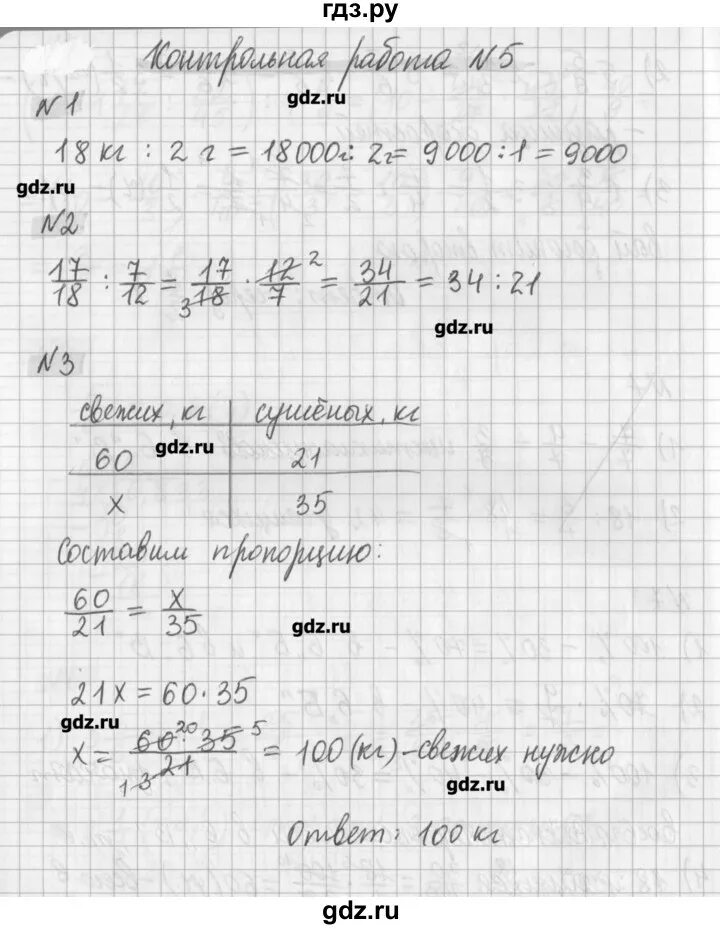 гдз.ру
Контрольная работа №5
gdz.ru
№1
18 кг : 2 г = 18000г : 2г = 9000 : 1 = 9000
gdz.ru
№2
17/18 : 7/12 = 17/18 3 · 12/7 2 = 34/21 = 34 : 21
gdz.ru
№3
свежих, кг | сушёных, кг
gdz.ru
60 | 21
x | 35
Составим пропорцию:
60/21 = x/35
gdz.ru
21x = 60·35
gdz.ru
x = 60 20 · 35 5 / 21 3 1 = 100 (кг) - свежих нужно
gdz.ru
Ответ: 100 кг
gdz.ru